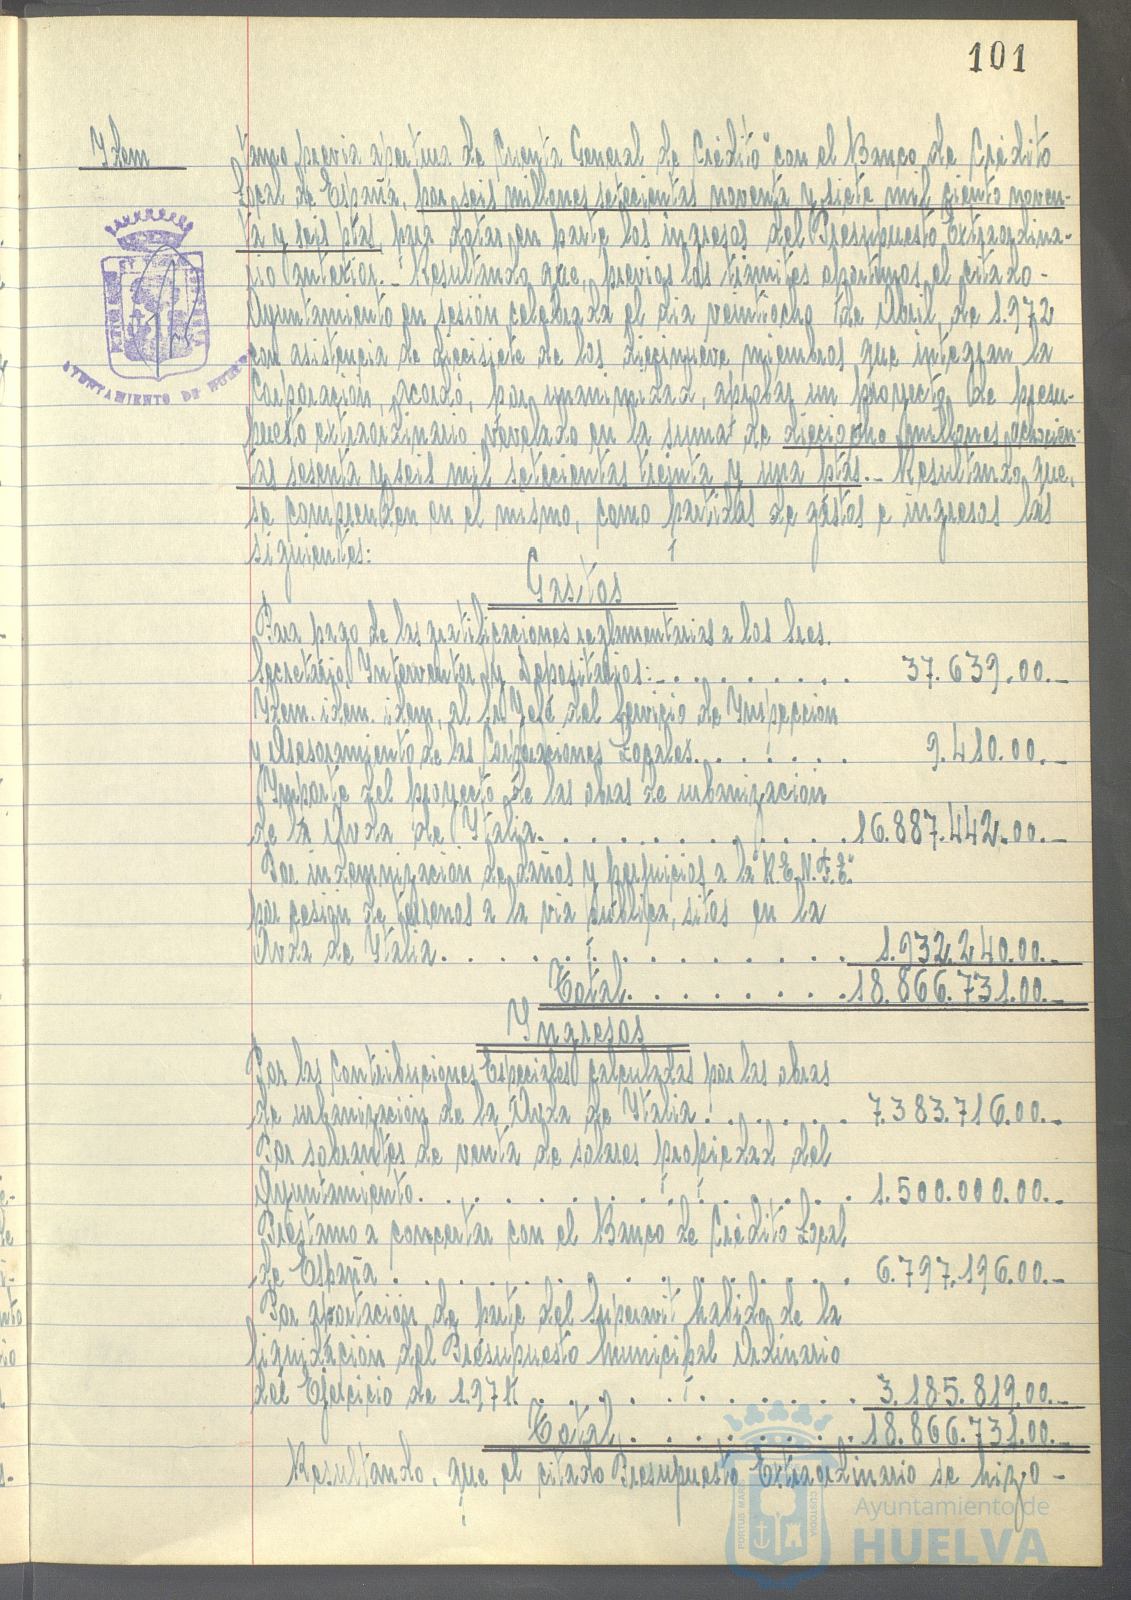 101
Idem
tamo previa apertura de "Cuenta General de Crédito" con el Banco de Crédito
Local de España, por seis millones setecientas noventa y siete mil ciento noven-
ta y seis ptas para dotar en parte los ingresos del Presupuesto Extraordina-
rio anterior.- Resultando que, previos los trámites oportunos el citado-
Ayuntamiento en sesión celebrada el dia veintiocho de Abril, de 1.972
con asistencia de diecisiete de los diecinueve miembros que integran la
Corporación, acordó, por unanimidad, aprobar un proyecto de presu-
puesto extraordinario nivelado en la suma de dieciocho millones ochocien-
tas sesenta y seis mil setecientas treinta y una ptas.- Resultando, que,
se comprenden en el mismo, como partidas de gastos e ingresos las
siguientes:
AYUNTAMIENTO DE HUELVA
Gastos
Para pago de las gratificaciones reglamentarias a los Sres.
Secretario, Interventor y Depositarios:-. . . . . . . . . . 37.639.00.-
Idem. idem. idem, al Sr. Jefe del Servicio de Inspección
y Asesoramiento de las Corporaciones Locales. . . . . . . 9.410.00.-
Importe del proyecto de las obras de urbanización
de la Avda de Italia. . . . . . . . . . . . 16.887.442.00.-
Por indemnización de daños y perjuicios a la "R.E.N.F.E."
por cesión de terrenos a la via pública, sitos en la
Avda de Italia. . . . . . . . . . . . . 1.932.240.00.-
Total. . . . . . . . 18.866.731.00.-
Ingresos
Por las Contribuciones Especiales calculadas por las obras
de urbanización de la Avda de Italia . . . . . . 7.383.716.00.-
Por sobrantes de venta de solares propiedad del
Ayuntamiento. . . . . . . . . . . . . . . 1.500.000.00.-
Préstamo a concertar con el Banco de Crédito Local
de España . . . . . . . . . . . . . . 6.797.196.00.-
Por aportación de parte del Superavit habido de la
liquidación del Presupuesto Municipal Ordinario
del Ejercicio de 1.971. . . . . . . . . . 3.185.819.00.-
Total. . . . . . . . . 18.866.731.00.-
Resultando, que el citado Presupuesto Extraordinario se hizo-
PORTUS MARIS CUSTODIA
Ayuntamiento de
HUELVA